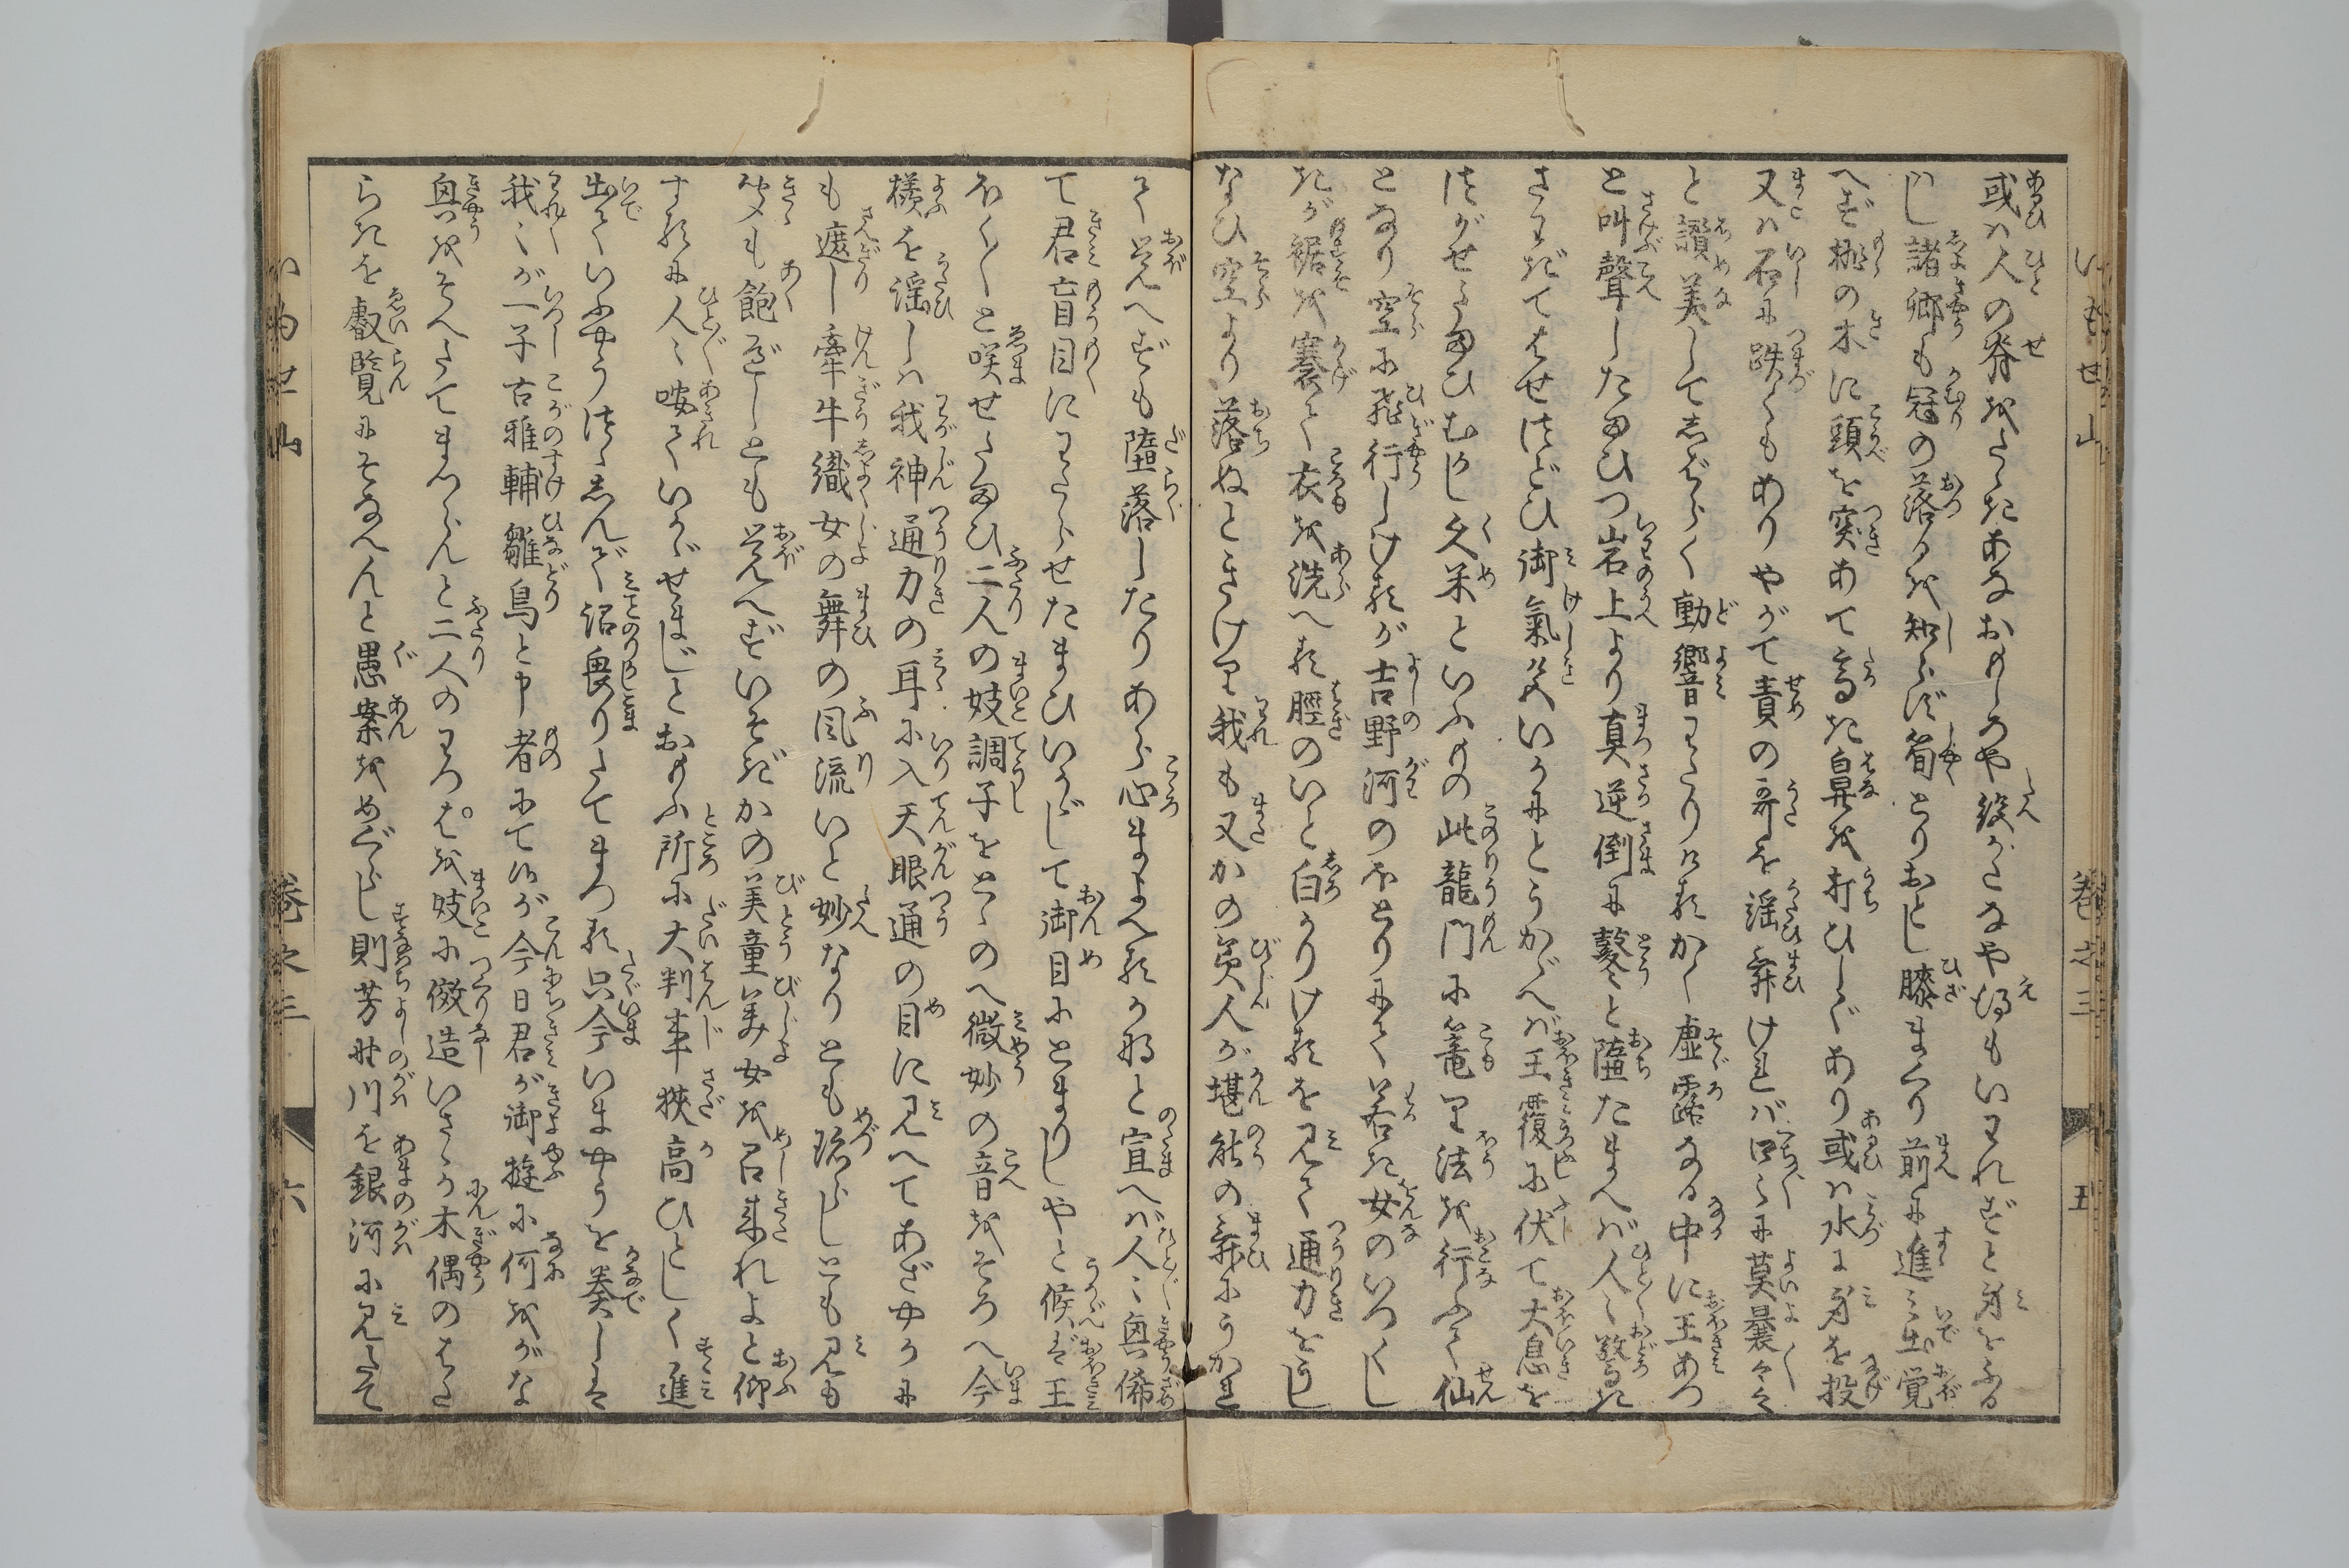 或ハ人の脊をたゝきあなおもしろや絞がたなや得もいわれずと身をふる
はし諸卿も冠の落るを知らず笏とりおとし膝まくり前に進み出覚
へず梛の木に頭を突あて高き鼻を打ひしぐあり或ハ水に身を投
又ハ石に跌くもありやがて責の哥を謡舞けれバ口〻に莫曩々々
と讃美してしばらく動響わたりける かく虚露なる中に王あつ
と叫聲したまひつ岩上より真逆倒に鼕〻と墮たまへバ人〻驚き
さわぎてはせつどひ御氣色いかにとうかゞへバ王覆に伏て大息を
つがせたまひむかし久米といふもの此龍門に篭り法を行ふて仙
となり空に飛行しけるが吉野河のほとりにて若き女のいつくし
きが裾を褰て衣を洗へる脛のいと白かりけるを見て通力をうし
なひ空より落ぬときけり我も又かの美人が堪能の舞にうかれ
て覚へずも墮落したりあら心まよへるかなと宣へバ人〻興倦
て君盲目にわたらせたまひいかじて御目にとまりしやと候ば王
ほく〳〵と咲せたまひ二人の妓調子をとゝのへ微妙の音をそろへ今
様を謡しハ我神通力の耳に入天眼通の目に見へてあざやかに
も遮し牽牛織女の舞の風流いと妙なりとも珍らしとも見も
聞も飽ぎしとも覚へずいそぎかの美童美女を召来れよと仰
するに人〻呆ていかゞせましとおもふ所に大判事狹高ひとしく進
出ていふやうつゝしんで詔畏りたてまつる只今いまやうを奏しは
我〻が一子古雅輔雛鳥と申者にて候が今日君が御遊に何をがな
興をそへたてまつらんと二人のわつぱを妓に倣造いさゝか木偶のはた
らきを叡覧にそなへんと愚案をめぐらし則芳野川を銀河に見たて
いもせ山
巻之三
五
いもせ山
巻之三
六